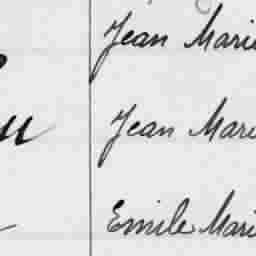 Jean Marie
Jean Mari
Emile Mari